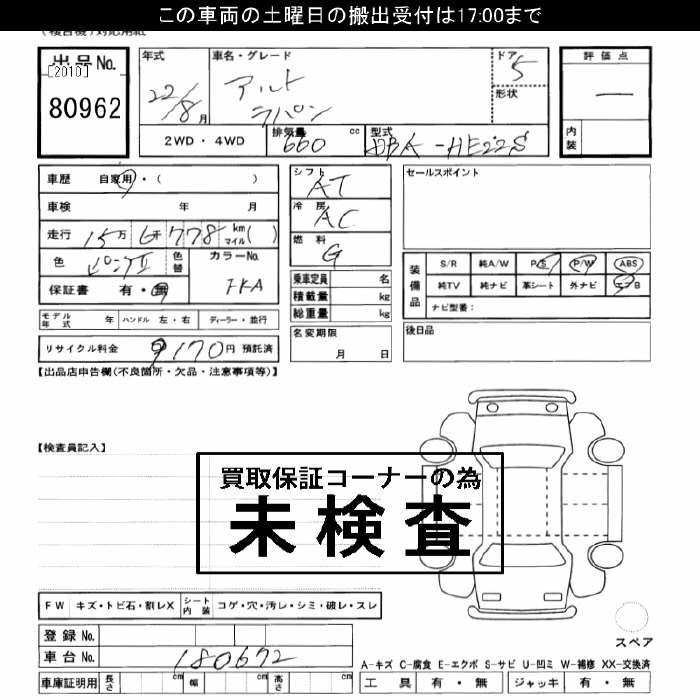 この車両の土曜日の搬出受付は17:00まで
(複合機)対応用紙
出品No.
[2010]
80962
年式
22/8月
車名・グレード
アルト
ラパン
ドア
5
形状
評価点
―
内装
2WD・4WD
排気量
660 cc
型式
DBA-HE22S
車歴 自家用・( )
車検 年 月
走行 15万6千778 km マイル( )
色 ピンクII 色替
カラーNo.
保証書 有・無
シフト
AT
冷房
AC
燃料
G
乗車定員 名
積載量 kg
総重量 kg
セールスポイント
装備品
S/R 純A/W P/S P/W ABS
純TV 純ナビ 革シート 外ナビ エアB
ナビ型番:
モデル年式 年 ハンドル 左・右 ディーラー・並行
名変期限
月 日
後日品
リサイクル料金 9170円 預託済
【出品店申告欄(不良箇所・欠品・注意事項等)】
【検査員記入】
買取保証コーナーの為
未検査
FW キズ・トビ石・割レX シート内装 コゲ・穴・汚レ・シミ・破レ・スレ
登録No.
車台No. 180672
車庫証明用 長さ cm 幅 cm 高さ cm
スペア
A-キズ C-腐食 E-エクボ S-サビ U-凹ミ W-補修 XX-交換済
工具 有・無 ジャッキ 有・無